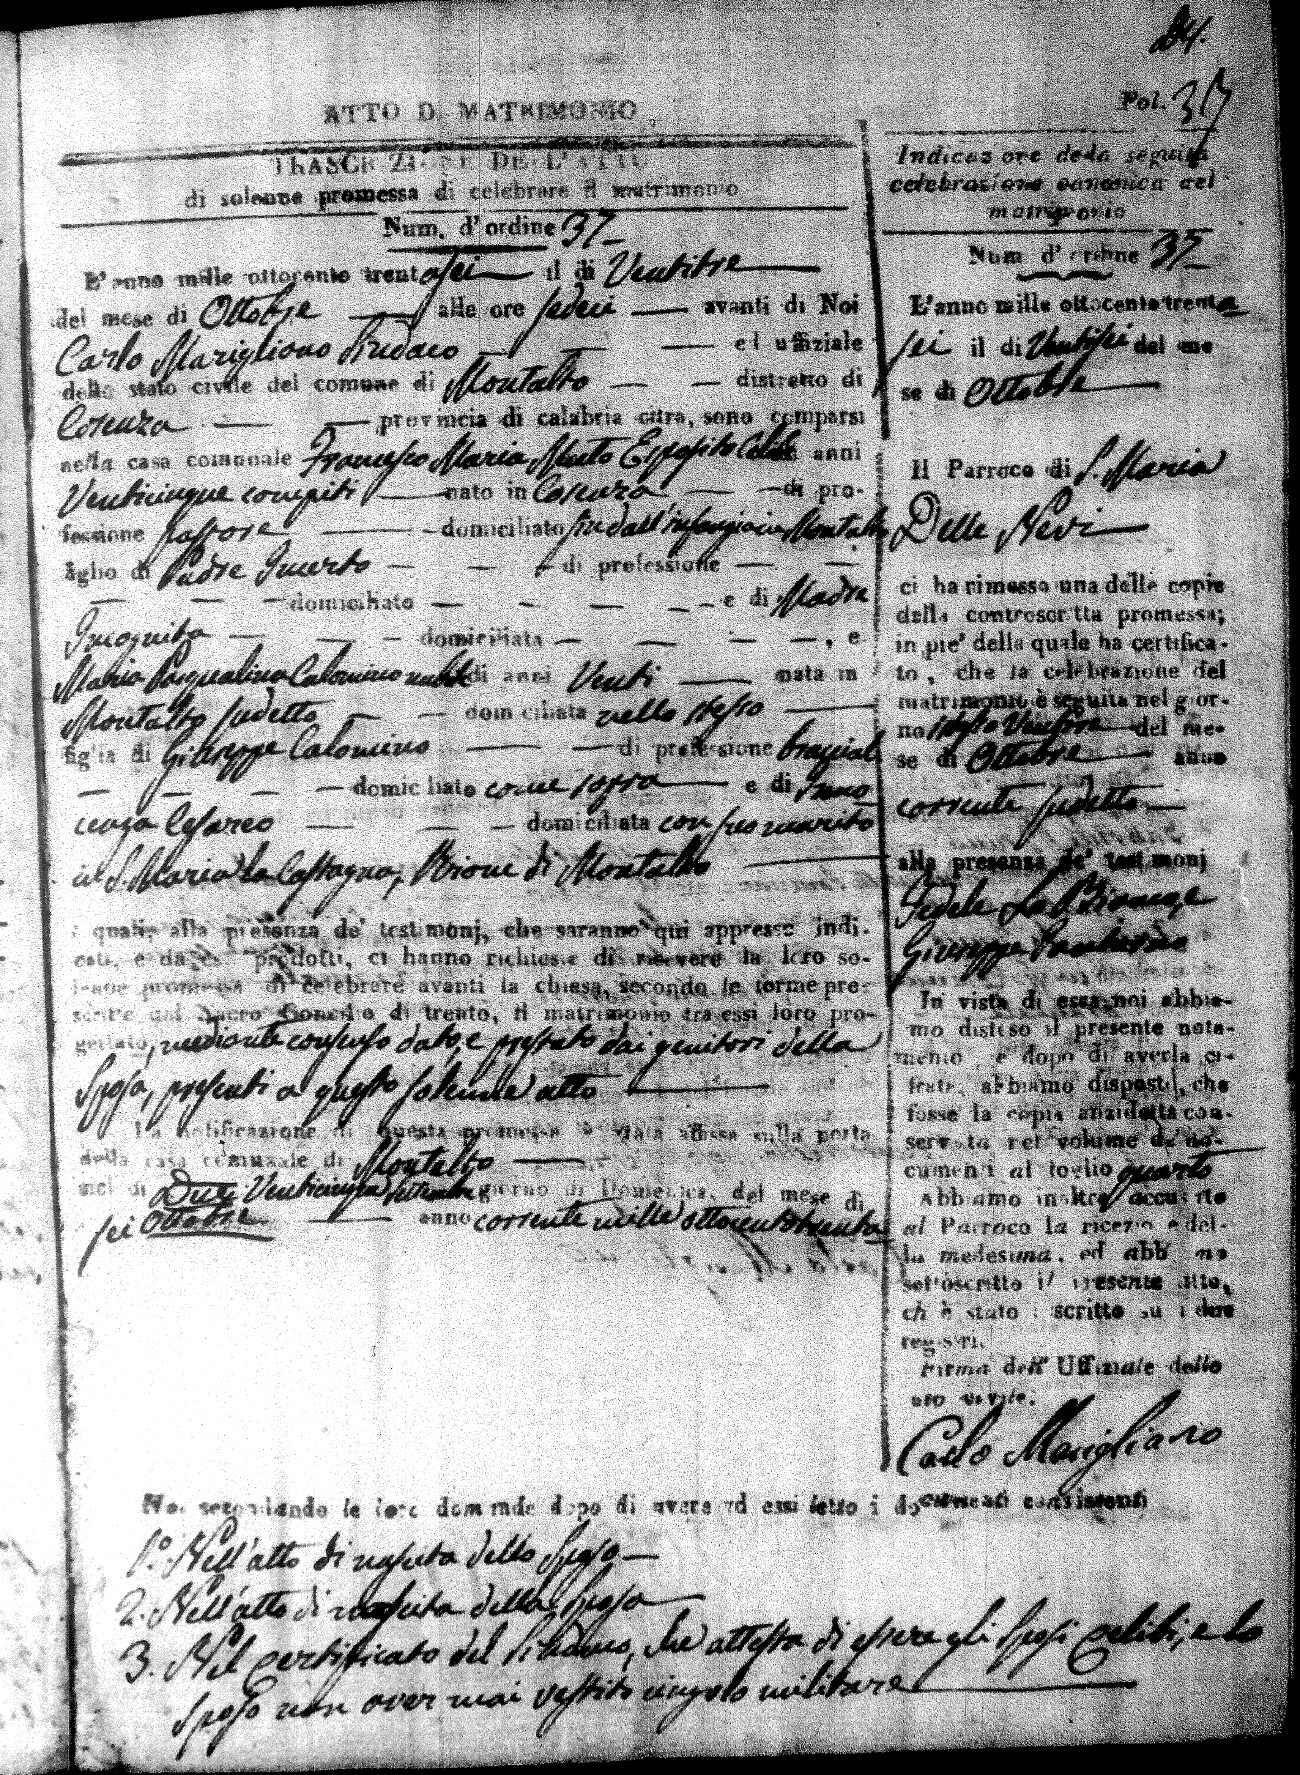 24.
Fol. 37
ATTO DI MATRIMONIO
TRASCRIZIONE DELL'ATTO
di solenne promessa di celebrare il matrimonio
Num. d'ordine 37
L'anno mille ottocento trentasei il dì Ventitre
del mese di Ottobre alle ore sedeci avanti di Noi
Carlo Marigliano Sindaco ed uffiziale
dello stato civile del comune di Montalto distretto di
Cosenza provincia di calabria citra, sono comparsi
nella casa comunale Francesco Maria Muto Esposito Celibe anni
Venticinque compiti nato in Cosenza di pro-
fessione pastore domiciliato fin dall'infanzia in Montalto
figlio di Padre Incerto di professione
domiciliato e di Madre
Incognita domiciliata , e
Maria Pasqualina Calomino nubile di anni Venti nata in
Montalto sudetto domiciliata nello stesso
figlia di Giuseppe Calomino di professione bracciale
domiciliato come sopra e di Inno
cenza Cesareo domiciliata con suo marito
in S. Maria la Castagna, Rione di Montalto
i quali alla presenza de' testimonj, che saranno qui appresso indi-
cati, e da essi prodotti, ci hanno richiesto di ricevere la loro so-
lenne promessa di celebrare avanti la chiesa, secondo le forme pre-
scritte dal Sacro Concilio di trento, il matrimonio tra essi loro pro-
gettato, mediante consenso dato, e prestato dai genitori della
Sposa, presenti a questo solenne atto
La notificazione di questa promessa è stata affissa sulla porta
della casa comunale di Montalto
nel dì Due Venticinque settembre giorno di Domenica, del mese di
Ottobre anno corrente mille ottocentotrenta
sei
Indicazione della seguita
celebrazione canonica del
matrimonio
Num d'ordine 35
L'anno mille ottocento trenta
sei il dì Ventisei del me
se di Ottobre
Il Parroco di S. Maria
Delle Nevi
ci ha rimesso una delle copie
della controscritta promessa;
in piè della quale ha certifica-
to, che la celebrazione del
matrimonio è seguita nel gior-
no stesso Ventitre del me-
se di Ottobre anno
corrente sudetto
alla presenza de' testimonj
Fedele La Bianca, e
Giuseppe
In vista di essa noi abbia-
mo disteso il presente nota-
mento, e dopo di averla ci-
frata, abbiamo disposto, che
fosse la copia anzidetta con-
servata nel volume de' do-
cumenti al foglio quarto
Abbiamo inoltre accusato
al Parroco la ricezione del-
la medesima, ed abbiamo
sottoscritto il presente atto,
ch'è stato iscritto su i due
registri.
Firma dell' Uffiziale dello
stato civile.
Carlo Marigliano
Noi secondando le loro domande dopo di avere ad essi letto i documenti consistenti
1.º Nell'atto di nascita dello Sposo
2. Nell'atto di nascita della Sposa
3. Nel Certificato del Sindaco, che attesta di essere gli Sposi Celibi, e lo
Sposo non aver mai vestito cingolo militare